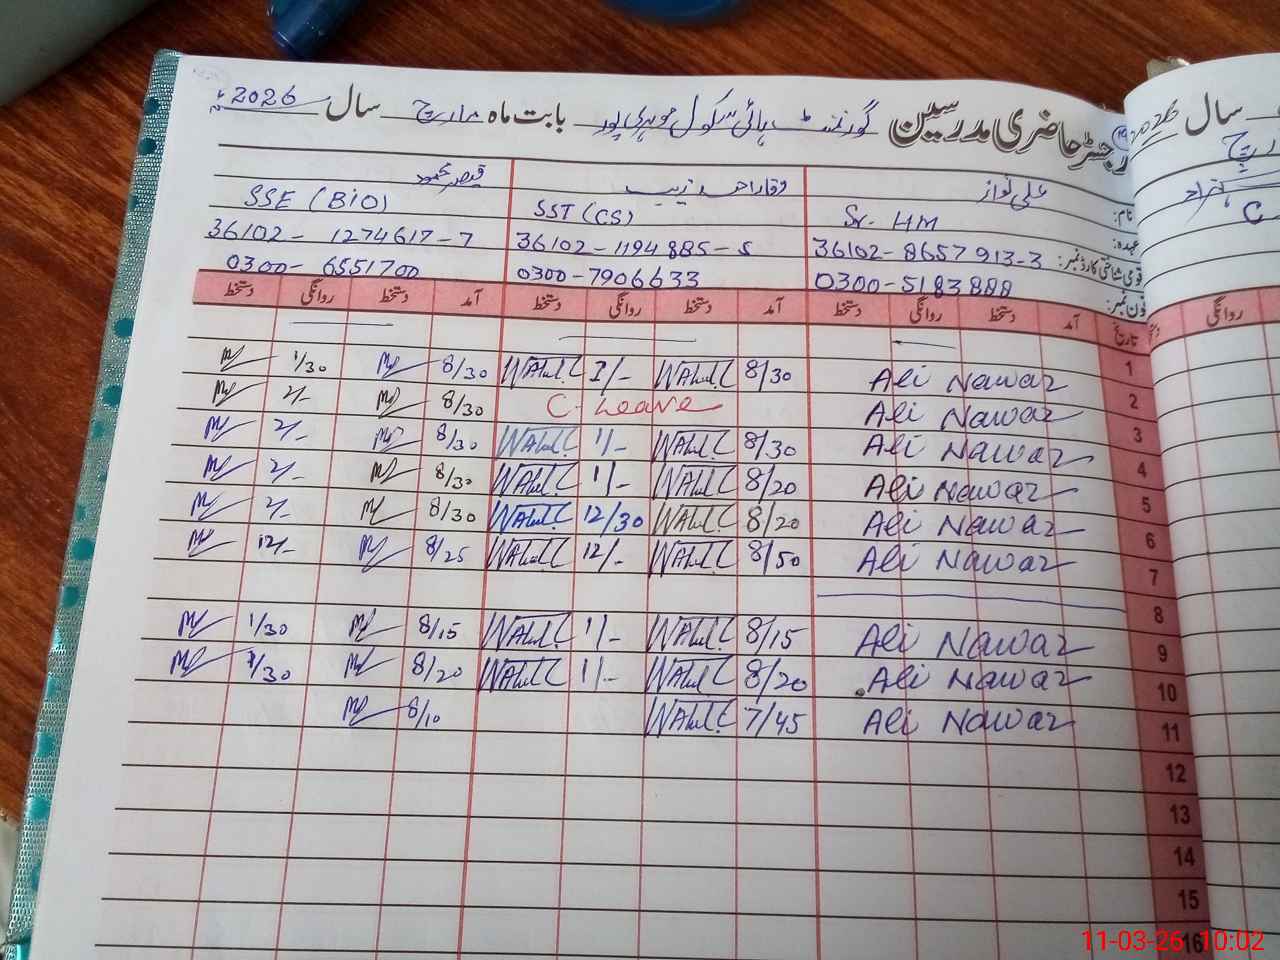 رجسٹر حاضری مدرسین گورنمنٹ ہائی سکول موہری پور بابت ماہ مارچ سال 2026ء
نام: علی نواز وقار احمد زیب قیصر محمود
عہدہ: Sr. HM SST (CS) SSE (BiO)
قومی شناختی کارڈ نمبر: 36102-8657913-3 36102-1194885-5 36102-1274617-7
فون نمبر: 0300-5183888 0300-7906633 0300-6551700
تاریخ آمد دستخط روانگی دستخط آمد دستخط روانگی دستخط آمد دستخط روانگی دستخط
1
2 Ali Nawaz 8/30 1/- 8/30 1/30
3 Ali Nawaz C. Leave 8/30 2/-
4 Ali Nawaz 8/30 1/- 8/30 2/-
5 Ali Nawaz 8/20 1/- 8/30 2/-
6 Ali Nawaz 8/20 12/30 8/30 2/-
7 Ali Nawaz 8/50 12/- 8/25 12/-
8
9 Ali Nawaz 8/15 1/- 8/15 1/30
10 Ali Nawaz 8/20 1/- 8/20 1/30
11 Ali Nawaz 7/45 8/10
12
13
14
15
16
سال 2026
روانگی
11-03-26 10:02